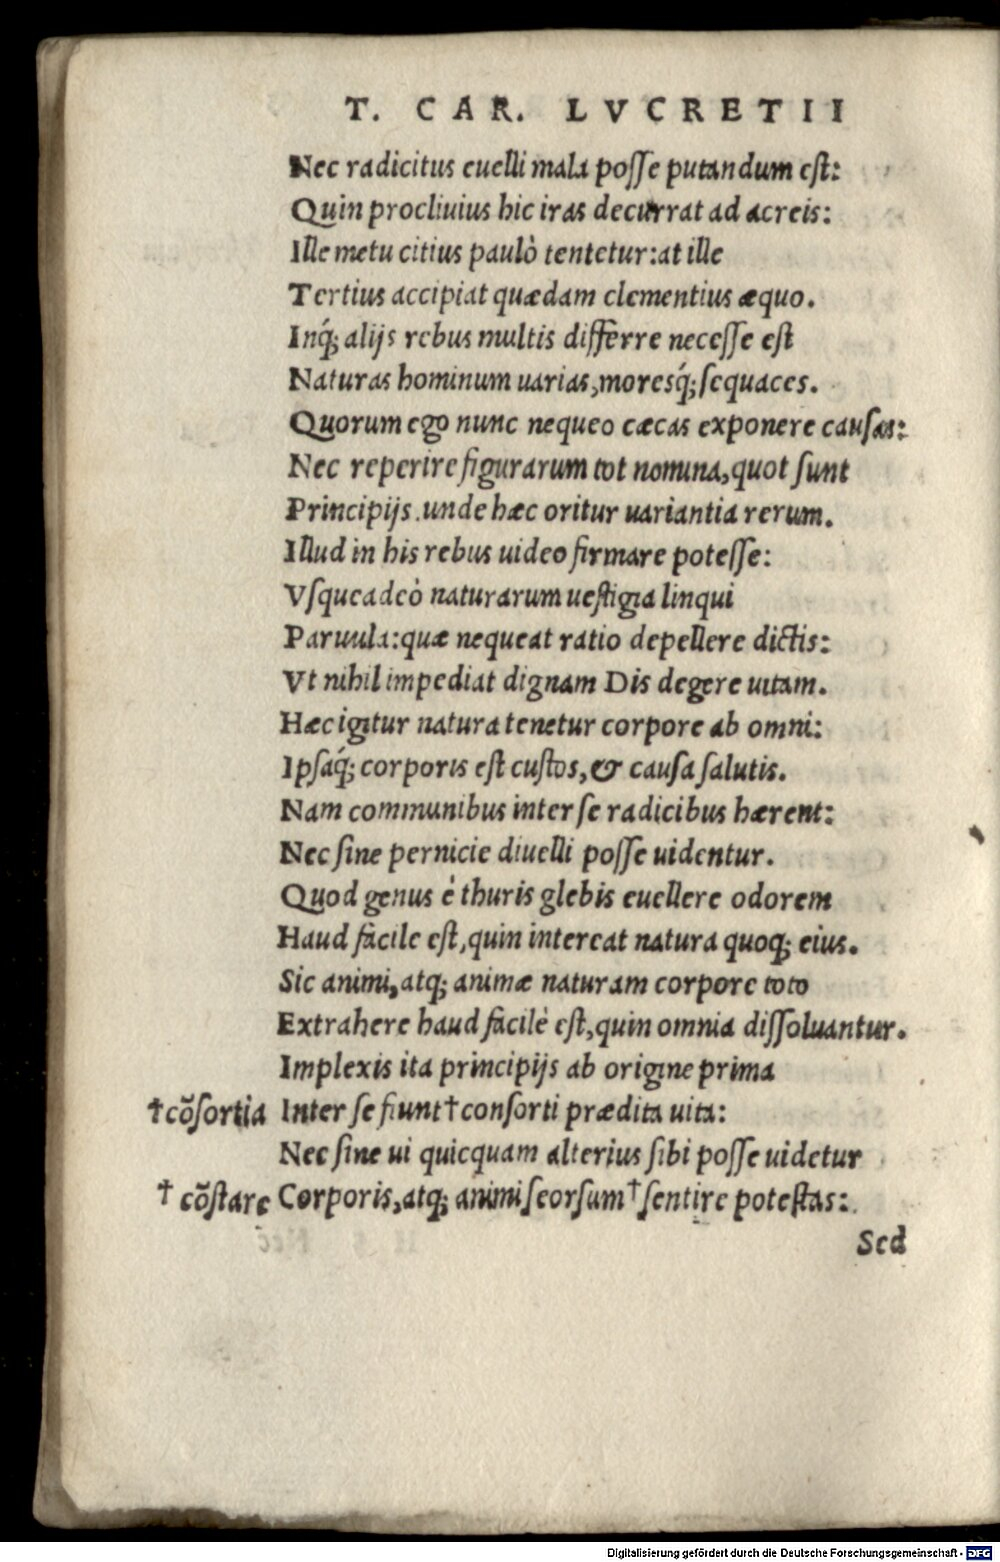 T. CAR. LVCRETII
Nec radicitus euelli mala posse putandum est:
Quin procliuius hic iras decurrat ad acreis:
Ille metu citius paulò tentetur: at ille
Tertius accipiat quædam clementius æquo.
Inq́; alijs rebus multis differre necesse est
Naturas hominum uarias, moresq́; sequaces.
Quorum ego nunc nequeo cæcas exponere causas:
Nec reperire figurarum tot nomina, quot sunt
Principijs. unde hæc oritur uariantia rerum.
Illud in his rebus uideo firmare potesse:
Vsqueadeò naturarum uestigia linqui
Paruula: quæ nequeat ratio depellere dictis:
Vt nihil impediat dignam Dis degere uitam.
Hæc igitur natura tenetur corpore ab omni:
Ipsaq́; corporis est custos, & causa salutis.
Nam communibus inter se radicibus hærent:
Nec sine pernicie diuelli posse uidentur.
Quod genus è thuris glebis euellere odorem
Haud facile est, quin intereat natura quoq; eius.
Sic animi, atq; animæ naturam corpore toto
Extrahere haud facilè est, quin omnia dissoluantur.
Implexis ita principijs ab origine prima
†cõsortia Inter se fiunt † consorti prædita uita:
Nec sine ui quicquam alterius sibi posse uidetur
† cõstare Corporis, atq; animi seorsum † sentire potestas:
Sed
Digitalisierung gefördert durch die Deutsche Forschungsgemeinschaft - DFG